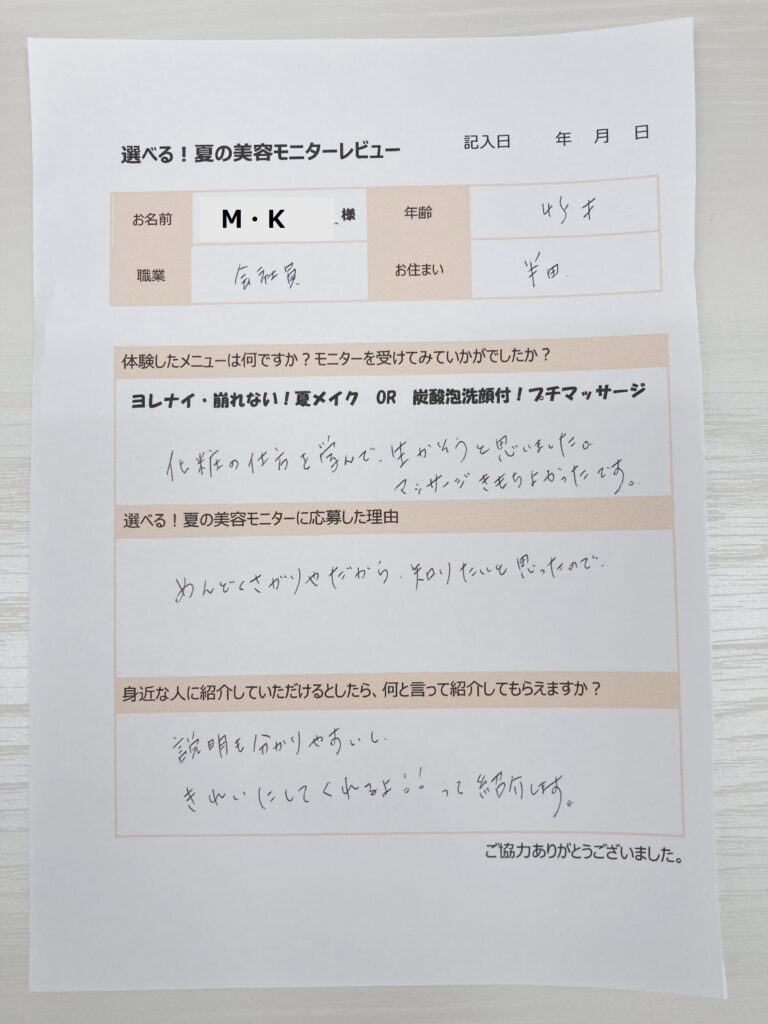 選べる！夏の美容モニターレビュー 記入日 年 月 日
お名前 M・K 様 年齢 45才
職業 会社員 お住まい 半田.
体験したメニューは何ですか？モニターを受けてみていかがでしたか？
ヨレナイ・崩れない！夏メイク OR 炭酸泡洗顔付！プチマッサージ
化粧の仕方を学んで、生かそうと思いました。
マッサージきもちよかったです。
選べる！夏の美容モニターに応募した理由
めんどくさがりやだから、知りたいと思ったので、
身近な人に紹介していただけるとしたら、何と言って紹介してもらえますか？
説明も分かりやすいし、
きれいにしてくれるよ!!って紹介します。
ご協力ありがとうございました。